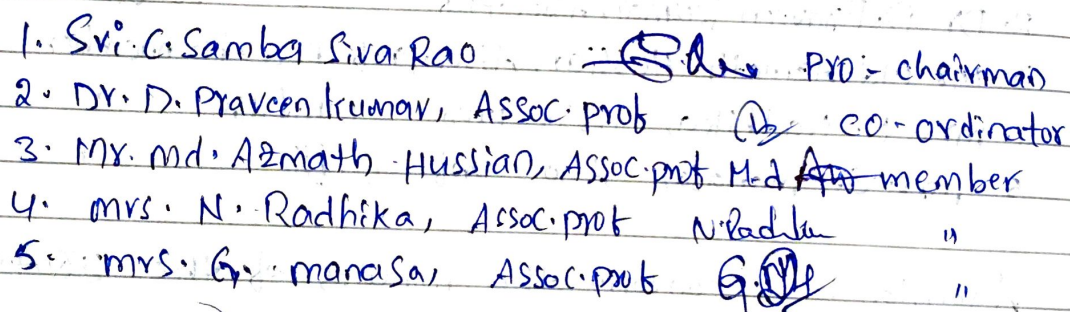 1. Sri. C. Samba Siva Rao Pro:- chairman
2. Dr. D. Praveen kumar, Assoc. prof. co-ordinator
3. Mr. md. Azmath Hussian, Assoc. prof M.d member
4. mrs. N. Radhika, Assoc. prof N. Radhika "
5. mrs. G. manasa, Assoc. prof G. "